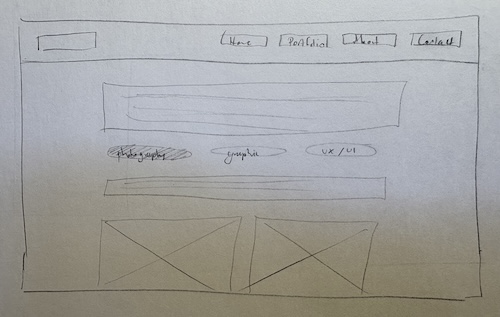 Home Portfolio About Contact
photography graphic ux/ui